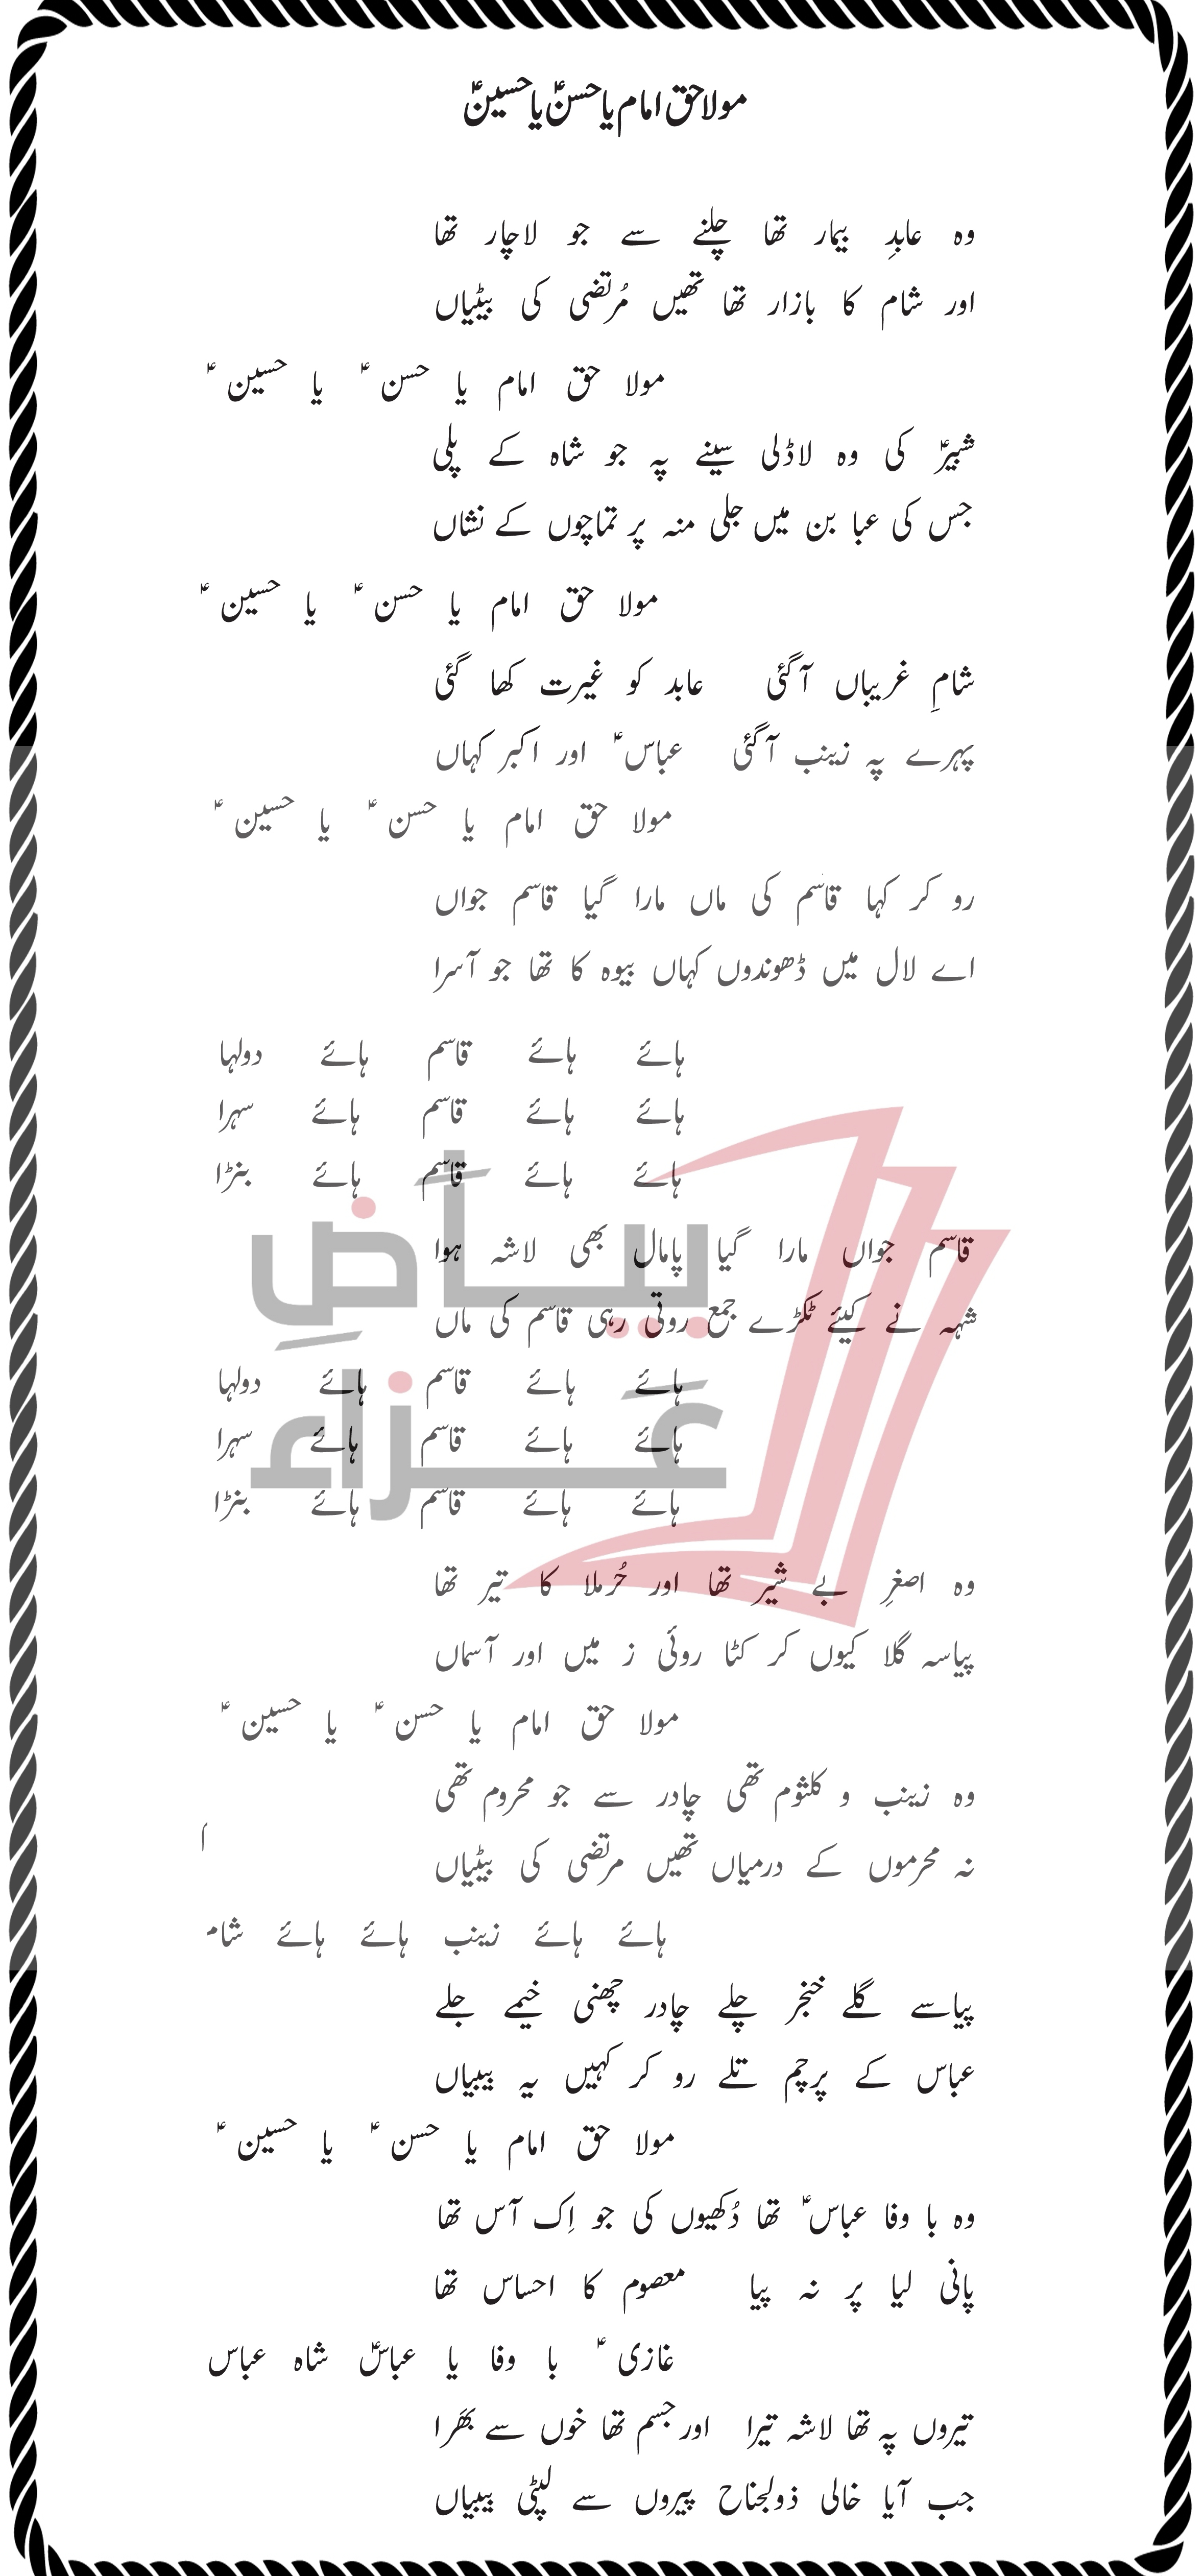 مولا حق امام یا حسنؑ یا حسینؑ
وہ عابدِ بیمار تھا چلنے سے جو لاچار تھا
اور شام کا بازار تھا تھیں مُرتضیٰ کی بیٹیاں
مولا حق امام یا حسن ؑ یا حسین ؑ
شبیرؑ کی وہ لاڈلی سینے پہ جو شاہ کے پلی
جس کی عبا بن میں جلی منہ پر تماچوں کے نشاں
مولا حق امام یا حسن ؑ یا حسین ؑ
شامِ غریباں آگئی عابد کو غیرت کھا گئی
پہرے پہ زینب آگئی عباس ؑ اور اکبر کہاں
مولا حق امام یا حسن ؑ یا حسین ؑ
رو کر کہا قاسم کی ماں مارا گیا قاسم جواں
اے لال میں ڈھوندوں کہاں بیوہ کا تھا جو آسرا
ہائے ہائے قاسم ہائے دولہا
ہائے ہائے قاسم ہائے سہرا
ہائے ہائے قاسم ہائے بنڑا
قاسم جواں مارا گیا پامال بھی لاشہ ہوا
شہہ نے کیئے ٹکڑے جمع روتی رہی قاسم کی ماں
ہائے ہائے قاسم ہائے دولہا
ہائے ہائے قاسم ہائے سہرا
ہائے ہائے قاسم ہائے بنڑا
بیاضِ
عزاء
وہ اصغرِ بے شیر تھا اور حُرملا کا تیر تھا
پیاسہ گلا کیوں کر کٹا روئی ز میں اور آسماں
مولا حق امام یا حسن ؑ یا حسین ؑ
وہ زینب و کلثوم تھی چادر سے جو محروم تھی
نہ محرموں کے درمیاں تھیں مرتضی کی بیٹیاں
ہائے ہائے زینب ہائے ہائے شام
پیاسے گلے خنجر چلے چادر چھنی خیمے جلے
عباس کے پرچم تلے رو کر کہیں یہ بیبیاں
مولا حق امام یا حسن ؑ یا حسین ؑ
وہ با وفا عباس ؑ تھا دُکھیوں کی جو اِک آس تھا
پانی لیا پر نہ پیا معصوم کا احساس تھا
غازی ؑ با وفا یا عباسؑ شاہ عباس
تیروں پہ تھا لاشہ تیرا اور جسم تھا خوں سے بھرا
جب آیا خالی ذولجناح پیروں سے لپٹی بیبیاں